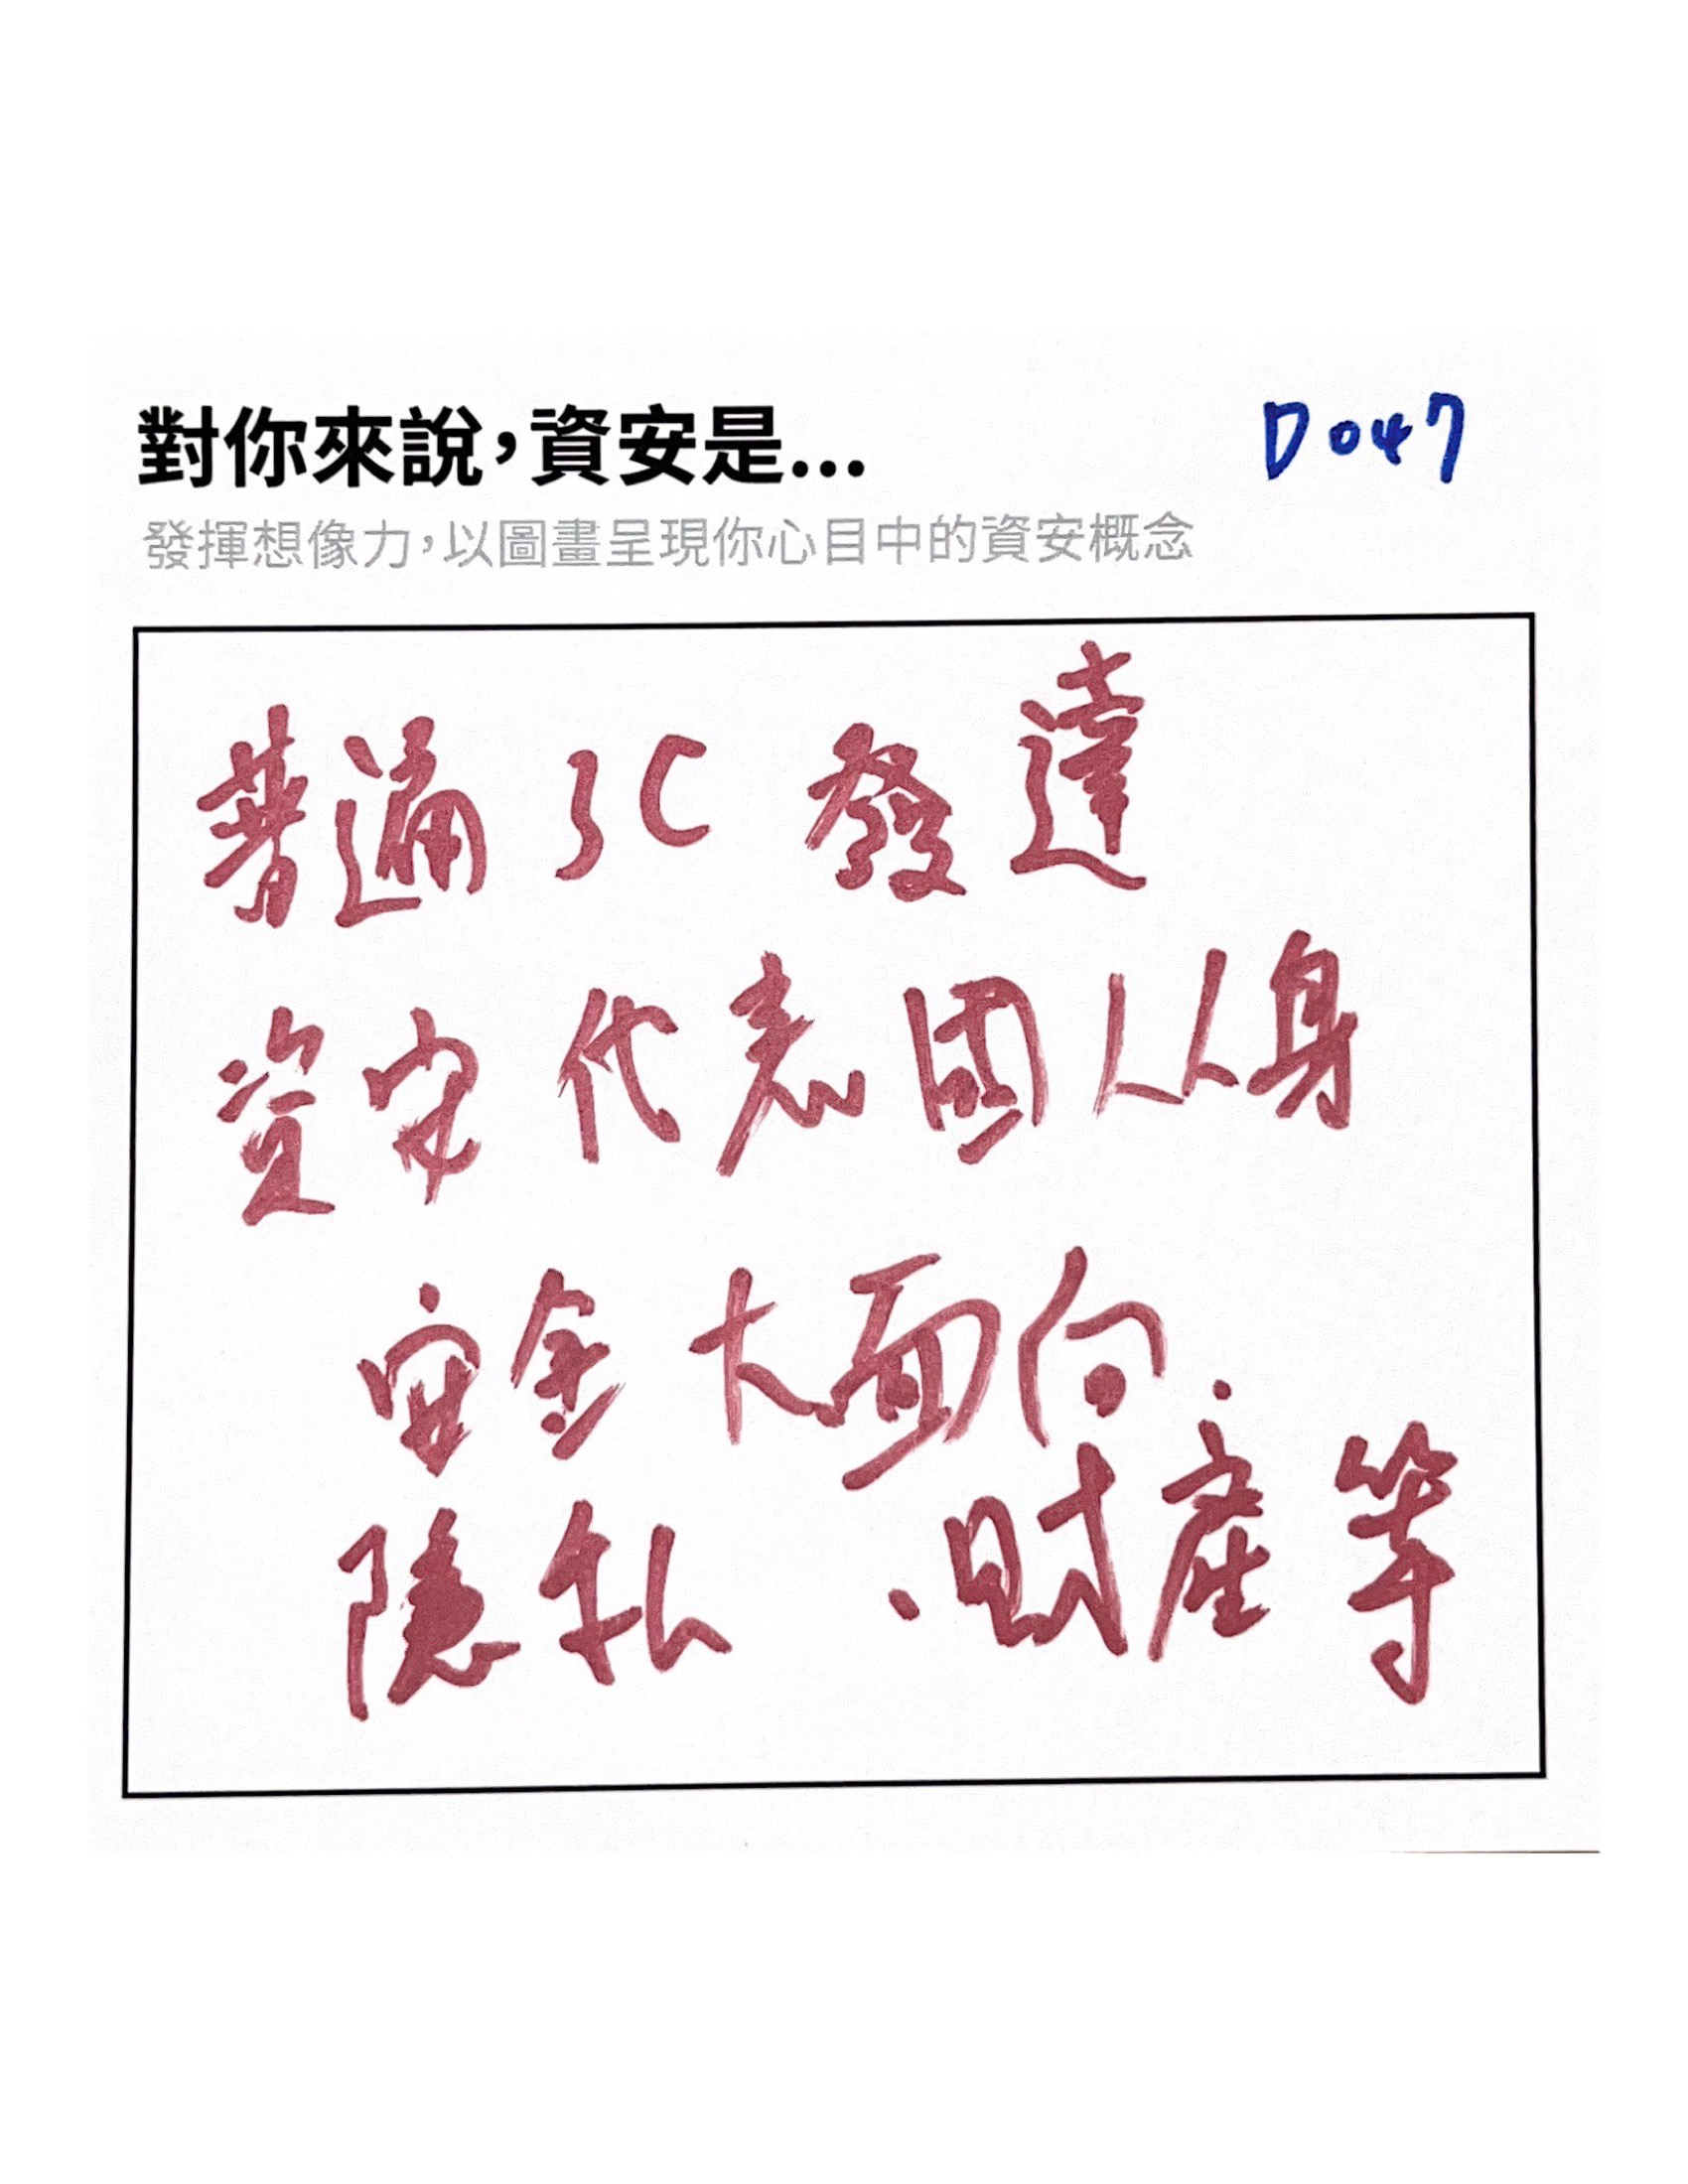 對你來說，資安是...
D047
發揮想像力，以圖畫呈現你心目中的資安概念
普遍 3C 發達
資安代表國人人身
安全大面向
隱私、財產等